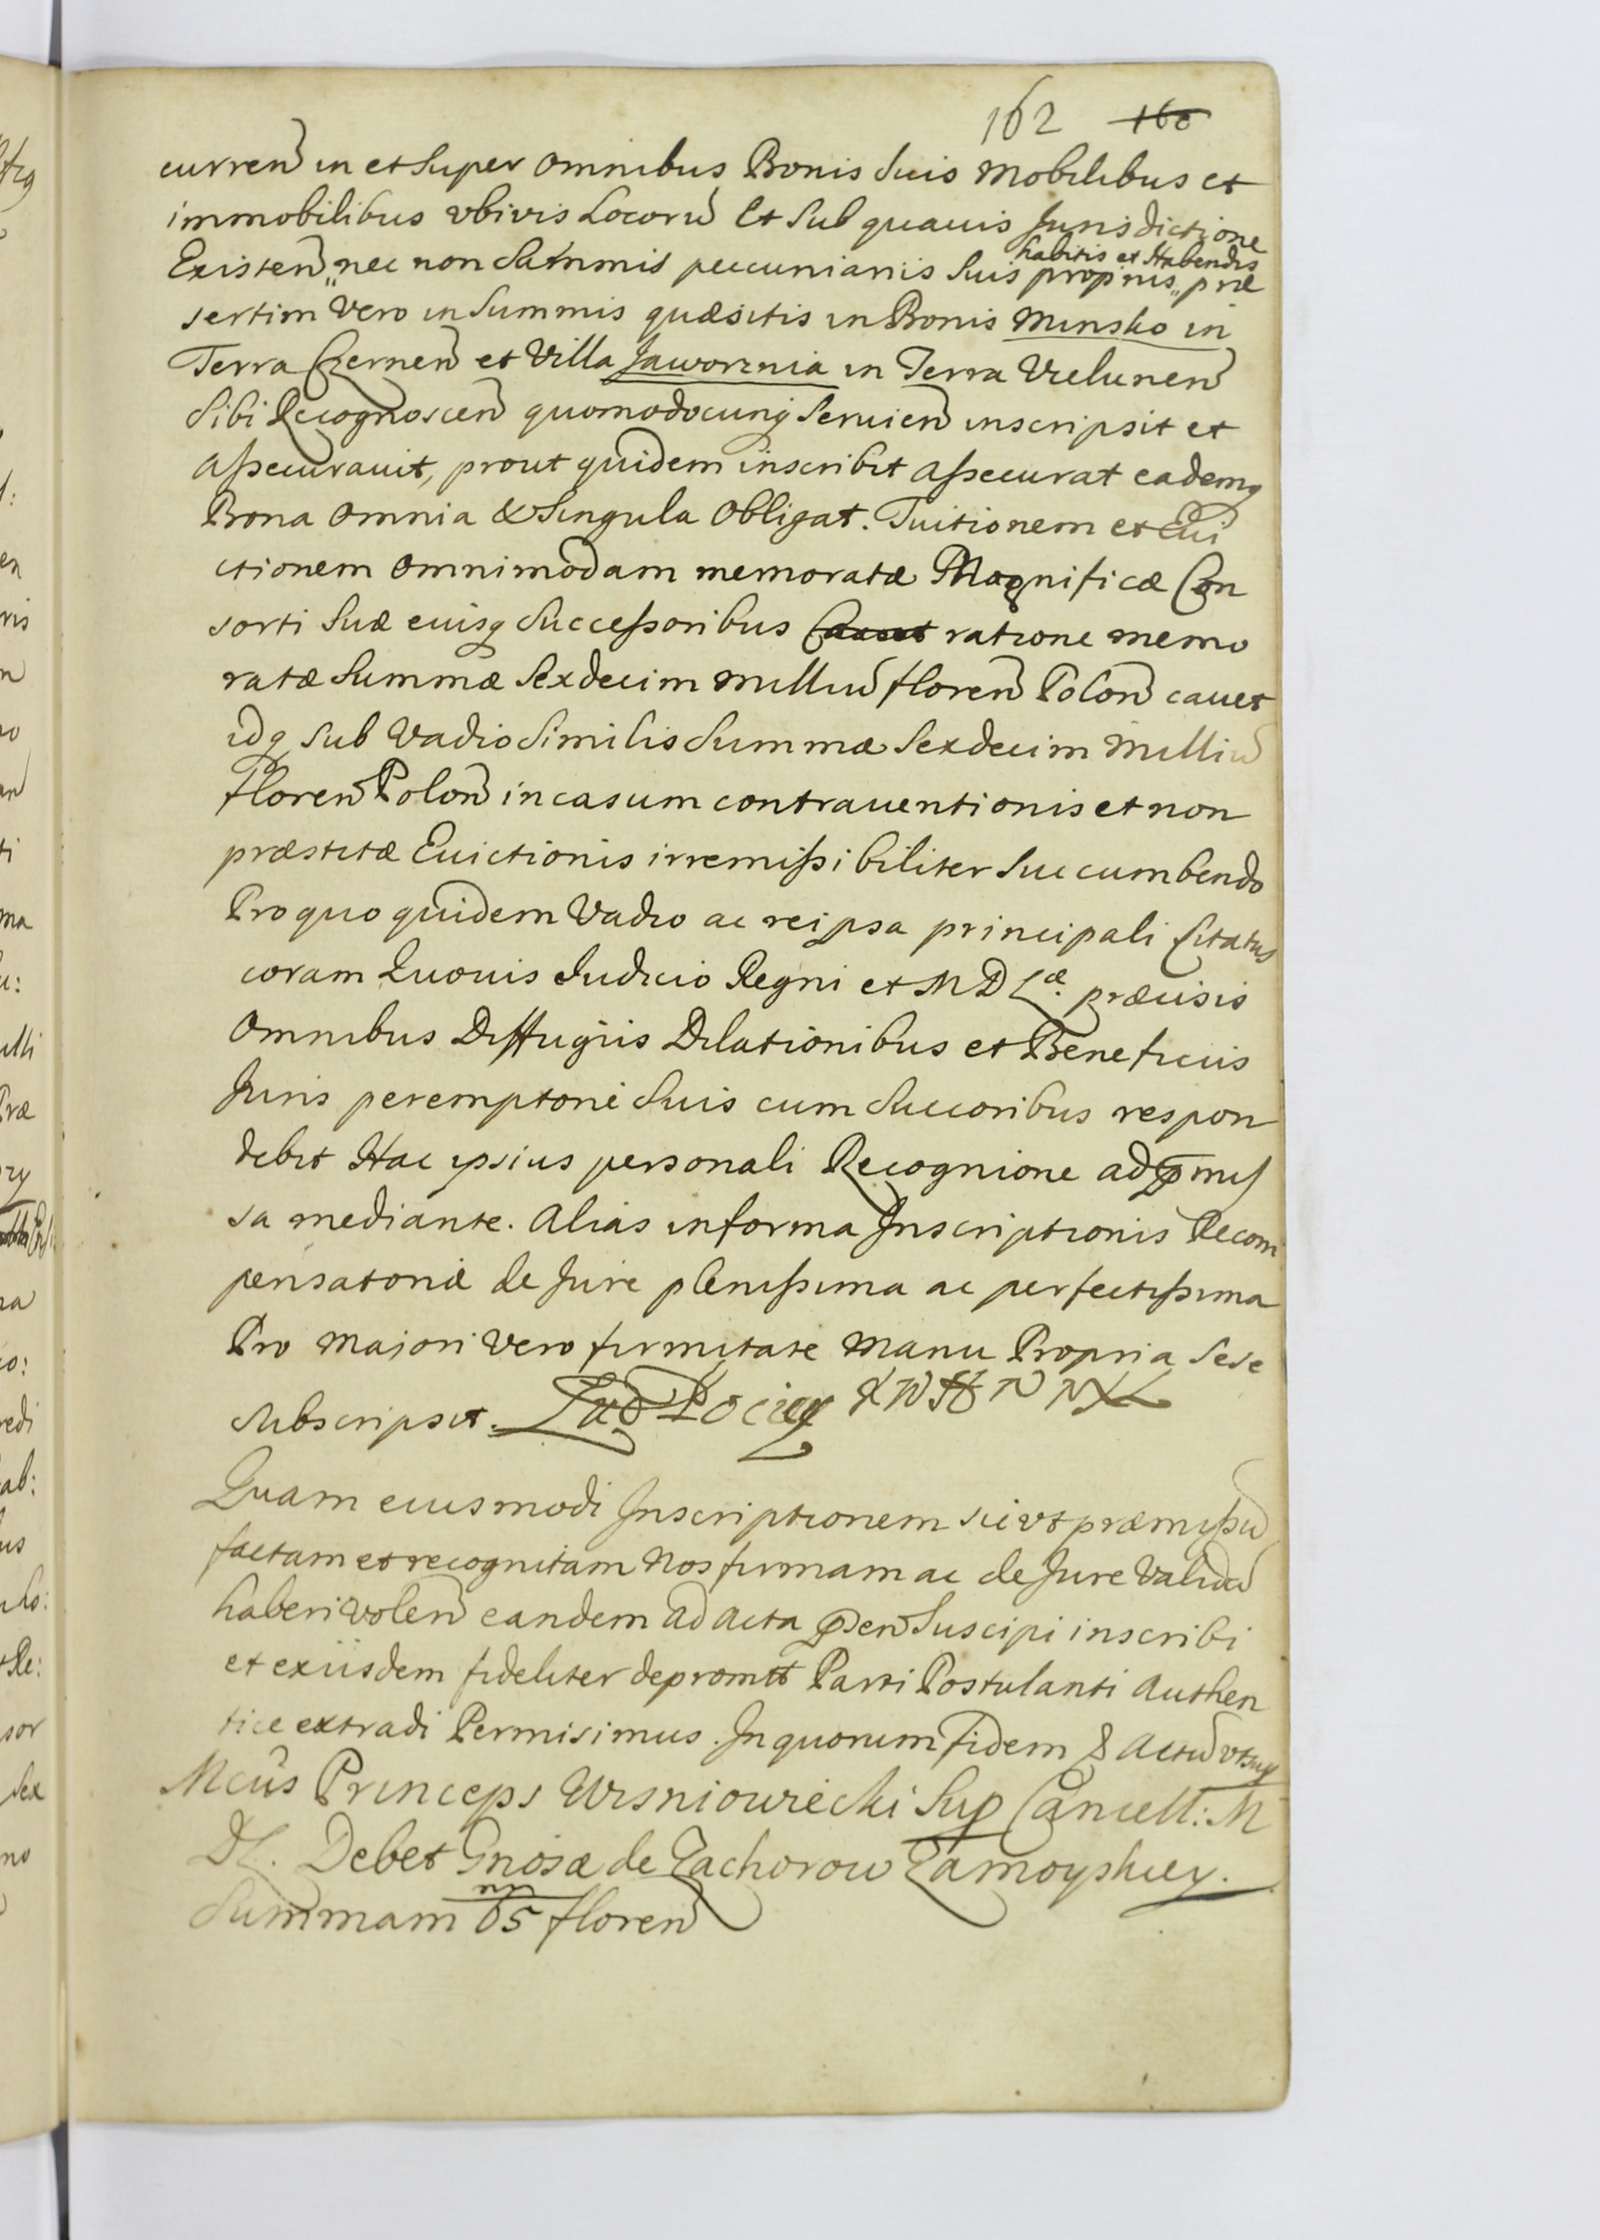 162 160
curren in et Super omnibus Bonis Suis Mobilibus et
immobilibus vbivis Locorū Et Sub quauis Jurisdictione
habitis et Habendis
Existen „ nec non Summis peccuniariis Suis proprius „ præ
sertim Vero in Summis quæsitis in Bonis Minsko in
Terra Czernen et Villa Jaworznia in Terra Vielunen
Sibi Recognoscen quomodocunq Seruien inscripsit et
Assecurauit, prout quidem inscribit assecurat eademq
Bona Omnia & Singula Obligat. Tuitionem et Evi
ctionem Omnimodam memoratæ Magnificæ Con
sorti Suæ euisq Successoribus ratione memo
ratæ Summæ Sexdecim Millium floren Polon cavet
idq Sub Vadio Similis Summæ Sexdecim Milliū
floren Polon in casum contrauentionis et non
præstitæ Euictionis irremissibiliter Succumbendo
Pro quo quidem Vadio ac reipsa principali Citatus
coram Quovis Judicio Regni et M D Læ. præcisis
Omnibus Diffugiis Dilationibus et Beneficiis
Juris peremptorie Suis cum Succoribus respon
debit Hac ipsius personali Recognione ad pmis
sa mediante. Alias in forma Inscriptionis Recom
pensatoriæ de Jure plenissima ac perfectissima
Pro Majori Vero firmitate Manu Propria Sese
Subscripsit. Lud Pociey
Quam eiusmodi Inscriptionem sic vt præmissū
factam et recognitam Nos firmam ac de Jure Validā
haberi volen eandem ad acta psen Suscipi inscribi
et ex iisdem fideliter depromtt Parti Postulanti Authen
tice extradi Permisimus. In quorum fidem & Actū vt sup
Mcūs Princeps Wisniowiecki Sup Cancell: M
D L. Debet Gnosæ de Zachorow Zamoyskiey.
Summam 65 floren